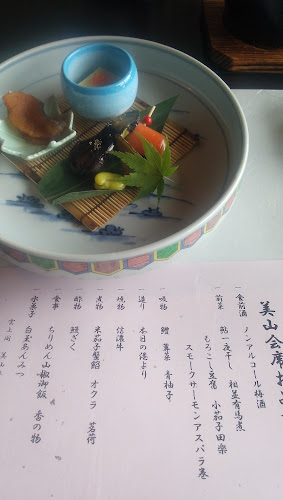 美山会席
一 食前酒 ノンアルコール梅酒
一 前菜 鮎一夜干し 有馬煮
もろこし豆腐 小茄子田楽
スモークサーモンアスパラ巻
一 吸物 鱧 蓴菜 青柚子
一 造り 本日の港より
一 焼物 信濃牛
一 煮物 米茄子蟹餡 オクラ 茗荷
一 酢物 鰻ざく
一 食事 ちりめん山椒御飯 香の物
一 水菓子 白玉あんみつ
雲上閣 美山